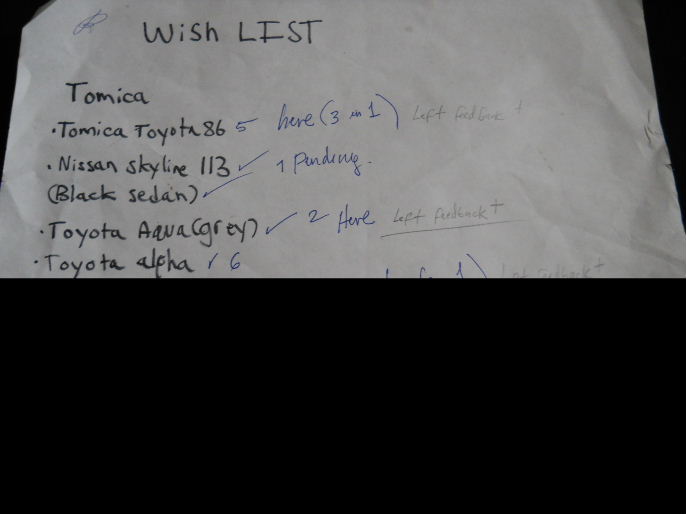 Wish LIST
Tomica
· Tomica Toyota 86 5 here (3 in 1) Left feedback +
· Nissan skyline 113 ✓ 1 Pending.
(Black sedan) ✓
· Toyota Aqua (grey) ✓ 2 Here Left feedback +
· Toyota alpha ✓ 6